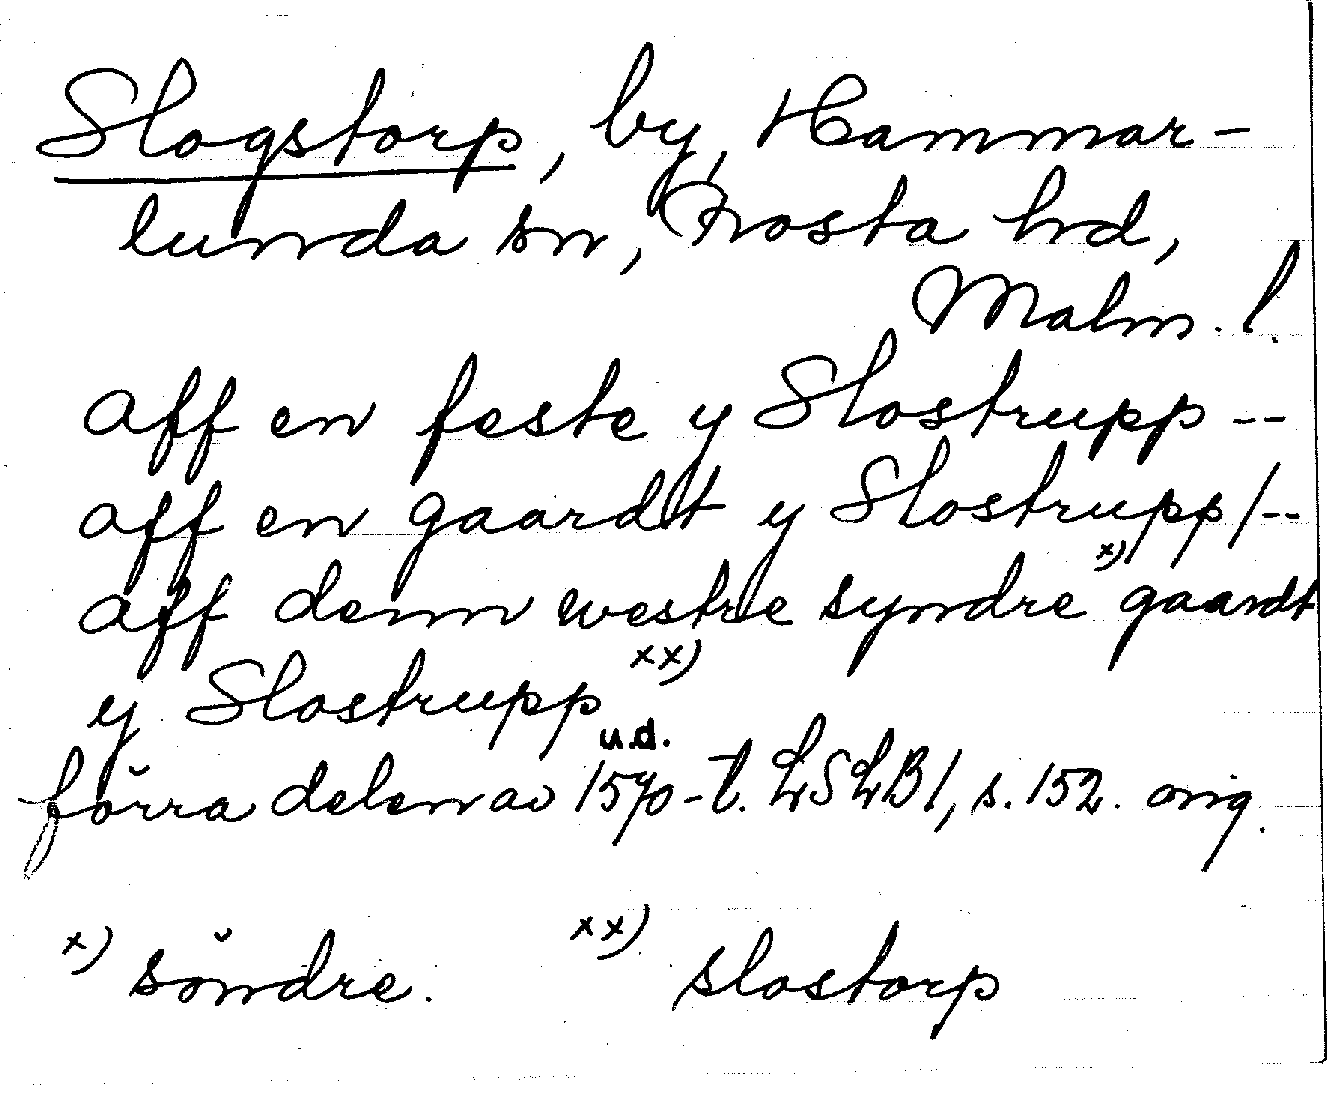 Slogstorp, by, Hammar-
lunda sn, Frosta hd,
Malm. l.
aff en feste y Slostrupp --
aff en gaardt y Slostrupp /--
aff denn westre syndre x) gaardt
y Slostrupp xx)
u.d.
förra delen av 1570-t. LSLB 1, s. 152. orig.
x) söndre. xx) slostorp